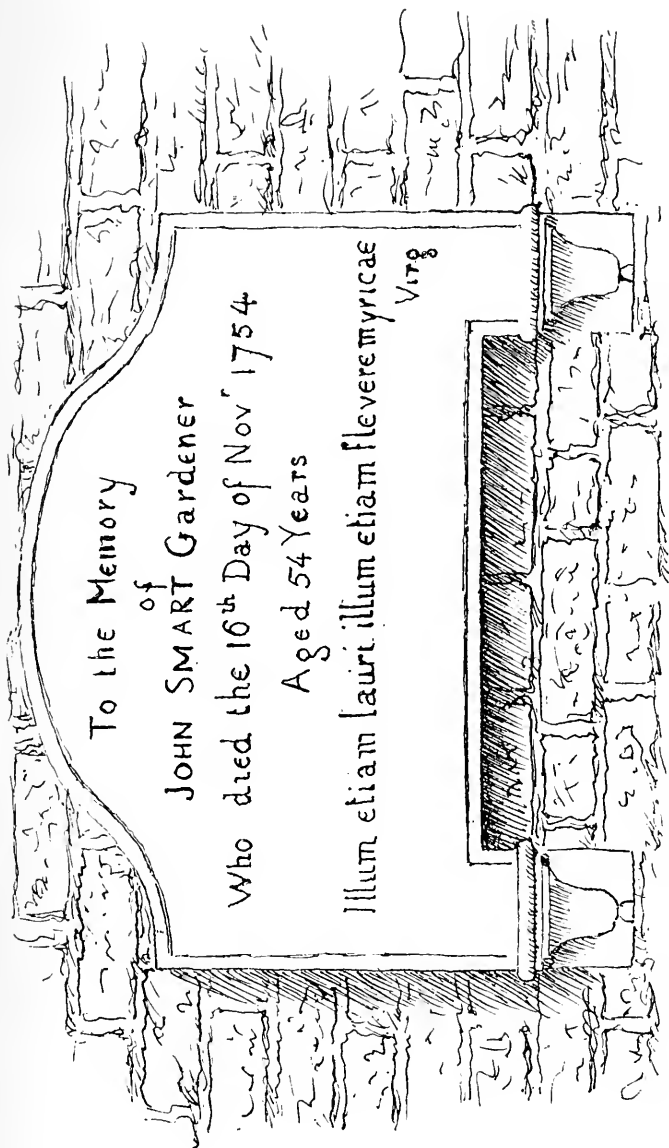 To the Memory
of
JOHN SMART Gardener
Who died the 16th Day of Novr 1754
Aged 54 Years
Illum etiam lauri illum etiam fleveremyricae
Virg